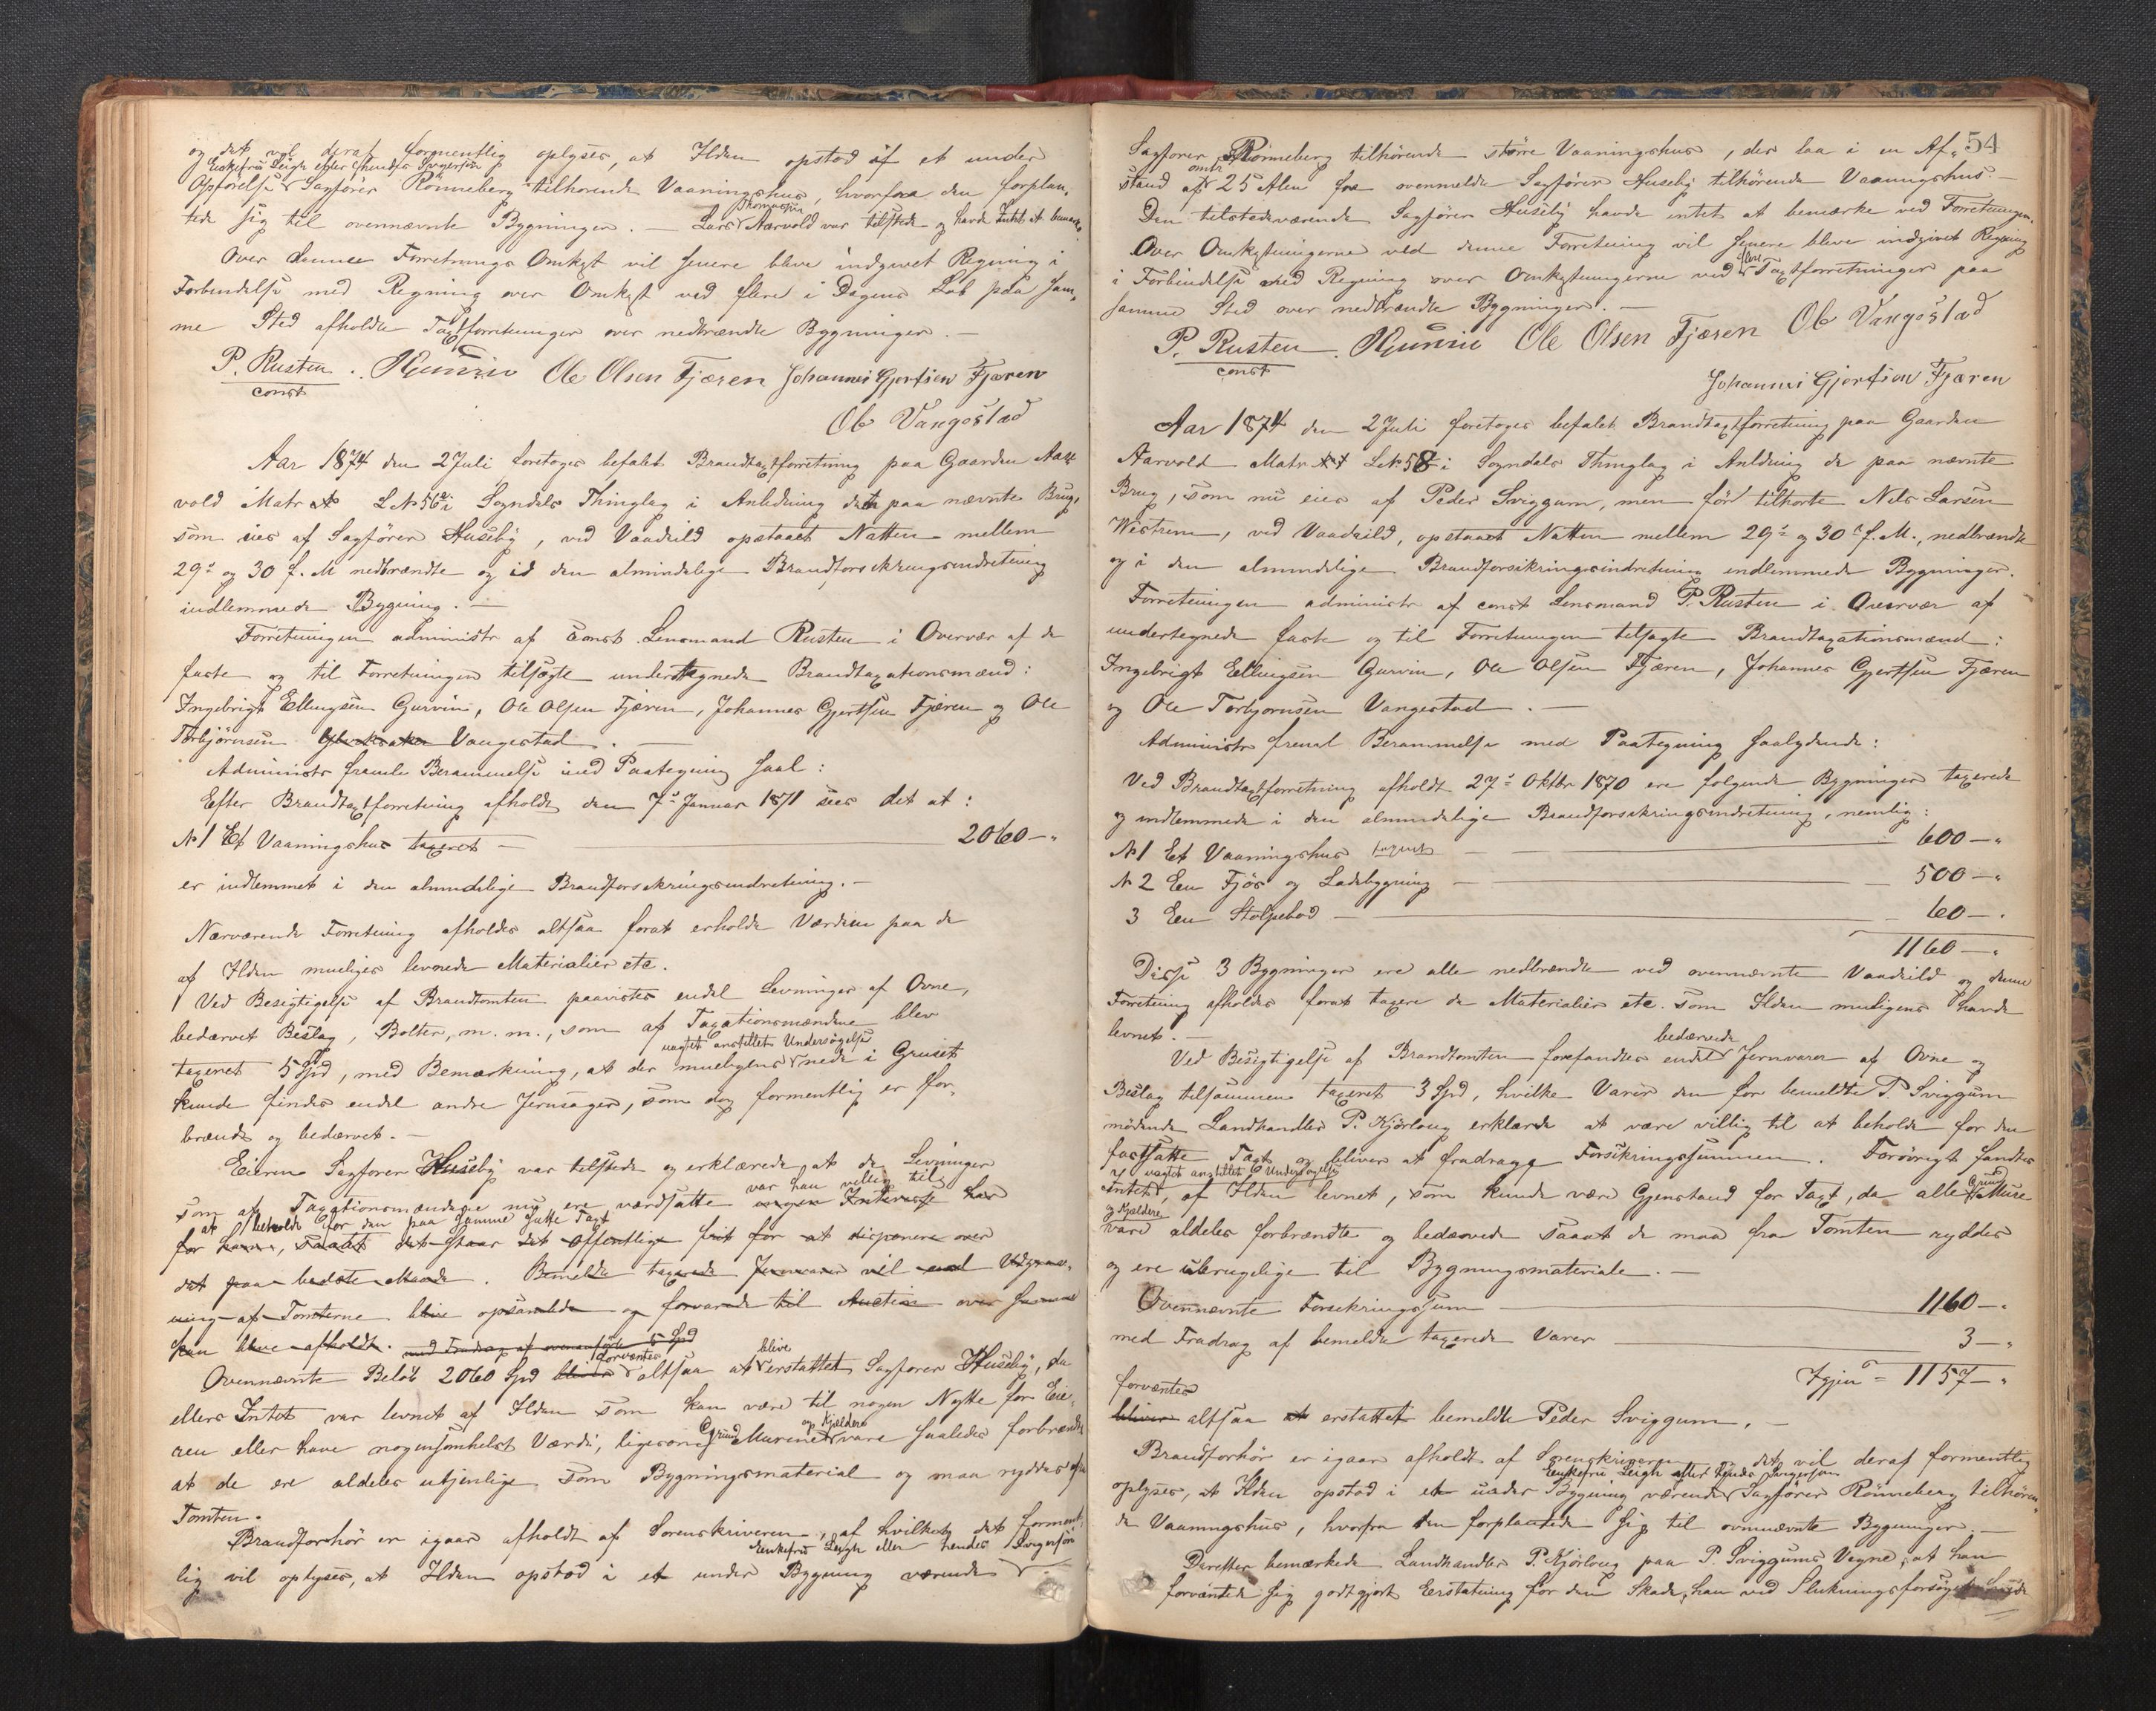 og det vil deraf formentlig oplyses, at Ilden opstod af et under
Enkefru Leigh eller hendes Svigersøn
Opførelse Sagfører Rönneberg tilhørende Vaaningshus, hvorfra den forplan-
Thomassen
tede sig til ovennævnte Bygninger. — Lars Aarvold var tilstede og havde Intet at bemærke.
Over denne Forretnings Omkost vil senere blive indgivet Regning i
Forbindelse med Regning over Omkost ved flere i Dagens Løb paa sam-
me Sted afholdte Taxtforretninger over nedbrændte Bygninger. —
P. Rusten . Ole Olsen Fjæren Johannes Gjertsen Fjæren
const
Ole Vangestad
Aar 1874 den 2 Juli foretoges befalet Brandtaxtforretning paa Gaarden Aar-
vold Matr N L.N 56 i Sogndals Thinglag i Anledning den paa nævnte Brug,
som eies af Sagfører Huseby, ved Vaadeild opstaaet Natten mellem
29de og 30 f. M nedbrændte og i den almindelige Brandforsikringsindretning
indlemmede Bygning. —
Forretningen administr af const Lensmand Rusten i Overvær af de
faste og til Forretningen tilsagte undertegnede Brandtaxationsmænd:
Ingebrigt Ellingsen Gurvin, Ole Olsen Fjæren, Johannes Gjertsen Fjæren og Ole
Torbjörnsen Vangestad. —
Administr freml Berammelse med Paategning saal:
Efter Brandtaxtforretning afholdt den 7de Januar 1871 sees det at:
N 1 Et Vaaningshus taxeret — 2060 — "
er indlemmet i den almindelige Brandforsikringsindretning. —
Nærværende Forretning afholdes altsaa forat erholde Værdien paa de
af Ilden muligens levnede Materialier etc.
Ved Besigtigelse af Brandtomten paavistes endel Levninger af Ovne,
bedærvet Beslag, Bolter, m. m., som af Taxationsmændene blev
uagtet anstillet Undersøgelse
taxeret 5 Spd, med Bemærkning, at der muligens nede i Gruset
kunde findes endel andre Jernsager, som dog formentlig er for-
brændt og bedærvet. —
Eieren Sagfører Huseby var tilstede og erklærede, at de Levninger
var han villig til
som af Taxationsmændene nu ere værdsatte ingen Interesse har
at beholde for den paa samme satte Taxt
for ham, saaat det staar det Offentlige frit for at disponere over
det paa bedste Maade. Bemeldte taxerede Jernvarer vil ved Udgrav-
ning af Tomterne blive opsamlede og forvarede til Auction over samme
kan blive afholdt. med Fradrag af ovenanførte 5 Spd
forventes blive
Ovennævnte Beløb 2060 Spd bliver altsaa at erstattet Sagfører Huseby, da
ellers Intet var levnet af Ilden som kan være til nogen Nytte for Eie-
og Kjeldere
ren eller have nogensomhelst Værdi, ligesom Grund Murene vare saaledes forbrændte
at de ere aldeles utjenlige som Bygningsmaterial og maa ryddes af
Tomten.
Brandforhør er igaar afholdt af Sorenskriveren, af hvilket det forment-
Enkefru Leigh eller hendes Svigersøn
lig vil oplyses, at Ilden opstod i et under Bygning værende
54
Sagfører Rönneberg tilhørende større Vaaningshus, der laa i en Af-
omtr
stand af 25 Alen fra ovenmeldte Sagfører Huseby tilhørende Vaaningshus. —
Den tilstedeværende Sagfører Huseby havde intet at bemærke ved Forretningen.
Over Omkostningerne ved denne Forretning vil senere blive indgivet Regning
flere
i Forbindelse med Regning over Omkostningerne ved Taxtforretninger paa
samme Sted over nedbrændte Bygninger. —
P. Rusten . Ole Olsen Fjæren Ole Vangestad
const
Johannes Gjertsen Fjæren
Aar 1874 den 2 Juli foretoges befalet Brandtaxtforretning paa Gaarden
Aarvold Matr N L.N 58 i Sogndals Thinglag i Anldning de paa nævnte
Brug, som nu eies af Peder Sviggum, men før tilhørte Nils Larsen
Westrem, ved Vaadeild, opstaaet Natten mellem 29de og 30de f. M., nedbrændte
og i den almindelige Brandforsikringsindretning indlemmede Bygninger.
Forretningen administr af const Lensmand P. Rusten i Overvær af
undertegnede faste og til Forretningen tilsagte Brandtaxationsmænd:
Ingebrigt Ellingsen Gurvin, Ole Olsen Fjæren, Johannes Gjertsen Fjæren
og Ole Torbjørnsen Vangestad. —
Administr freml Berammelse med Paategning saalydende:
Ved Brandtaxtforretning afholdt 27de Oktbr 1870 ere følgende Bygninger taxerede
og indlemmede i den almindelige Brandforsikringsindretning, nemlig:
N 1 Et Vaaningshus taxeret — 600 — "
N 2 Een Fjøs og Ladebygning — 500 — "
3 Een Stolpebod — 60 — "
1160 — "
Disse 3 Bygninger ere alle nedbrændte ved ovennævnte Vaadeild og denne
Forretning afholdes forat taxere de Materialier etc. som Ilden muligens havde
levnet. —
bedærvede
Ved Besigtigelse af Brandtomten forefandtes endel Jernvarer af Ovne og
Beslag tilsammen taxeret 3 Spd, hvilke Varer den for bemeldte P. Sviggum
mødende Landhandler P. Kjörloug erklærde at være villig til at beholde for den
fastsatte Taxt og bliver at fradrage Forsikringssummen. Forøvrigt fandtes
uagtet anstillet Undersøgelse
Intet, af Ilden levnet, som kunde være Gjenstand for Taxt, da alle Grund Mure
og Kjeldere
vare aldeles forbrændte og bedærvede saaat de maa fra Tomten ryddes
og ere ubrugelige til Bygningsmateriale. —
Ovennævnte Forsikringssum — 1160 — "
med Fradrag af bemeldte taxerede Varer — 3 — "
Igjen = 1157 — "
forventes
bliver altsaa at erstattet bemeldte Peder Sviggum. —
Brandforhør er igaar afholdt af Sorenskriveren og det vil deraf formentlig
Enkefru Leigh eller hendes Svigersøn
oplyses, at Ilden opstod i et under Bygning værende Sagfører Rönneberg tilhøren-
de Vaaningshus, hvorfra den forplantede sig til ovennævnte Bygninger. —
Derefter bemærkede Landhandler P. Kjörloug paa P. Sviggums Vegne, at han
forventede sig godtgjort Erstatning for den Skade, han ved Slukningsforsøget havde